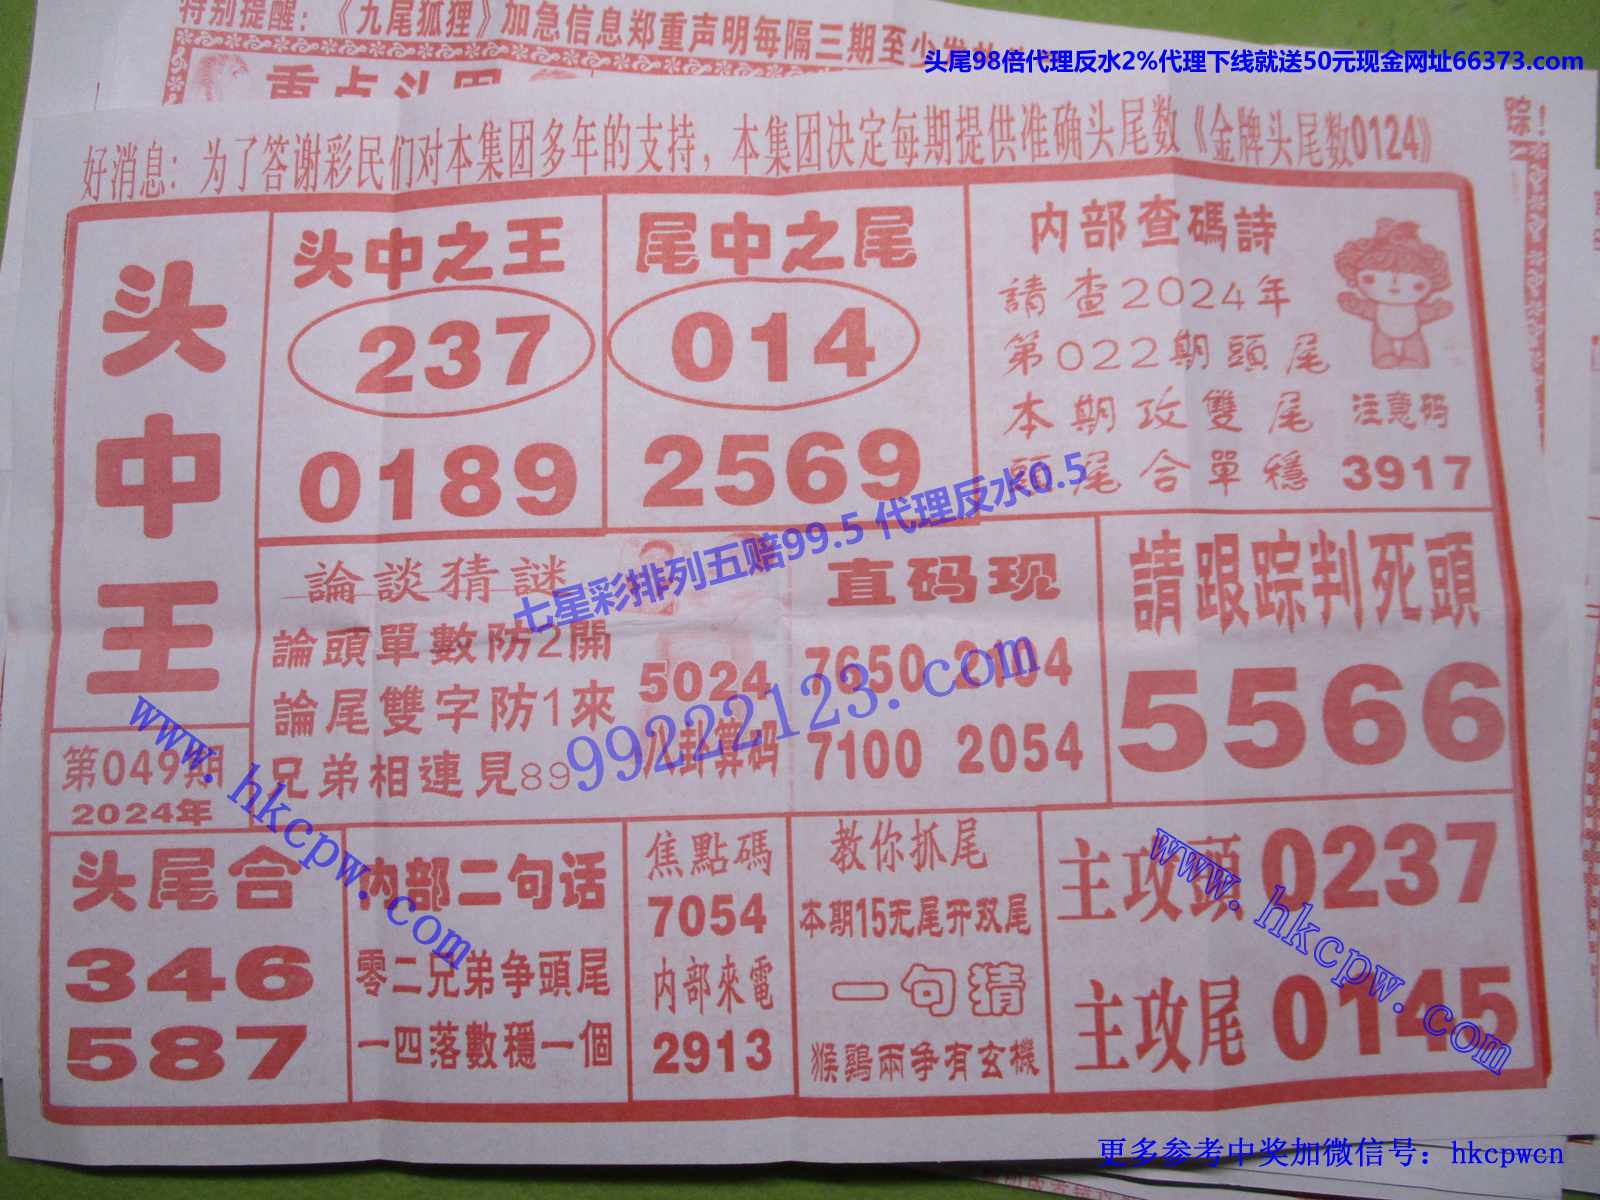 特别提醒：《九尾狐狸》加急信息郑重声明每隔三期至少
头尾98倍代理反水2%代理下线就送50元现金网址66373.com
踪！
好消息：为了答谢彩民们对本集团多年的支持，本集团决定每期提供准确头尾数《金牌头尾数0124》
头中王
第049期
2024年
头中之王
237
0189
尾中之尾
014
2569
内部查碼詩
請查2024年
第022期頭尾
本期攻雙尾
頭尾合單穩
注意码
3917
論談猜謎
論頭單數防2開
論尾雙字防1來
兄弟相連見89
5024
八卦算码
直码现
7650 2104
7100 2054
請跟踪判死頭
5566
七星彩排列五赔99.5 代理反水0.5
99222123.com
www.hkcpw.com
头尾合
346
587
内部二句话
零二兄弟争頭尾
一四落數穩一個
焦點碼
7054
内部來電
2913
教你抓尾
本期15无尾开双尾
一句猜
猴鷄兩争有玄機
主攻頭0237
主攻尾0145
www.hkcpw.com
更多参考中奖加微信号：hkcpwcn